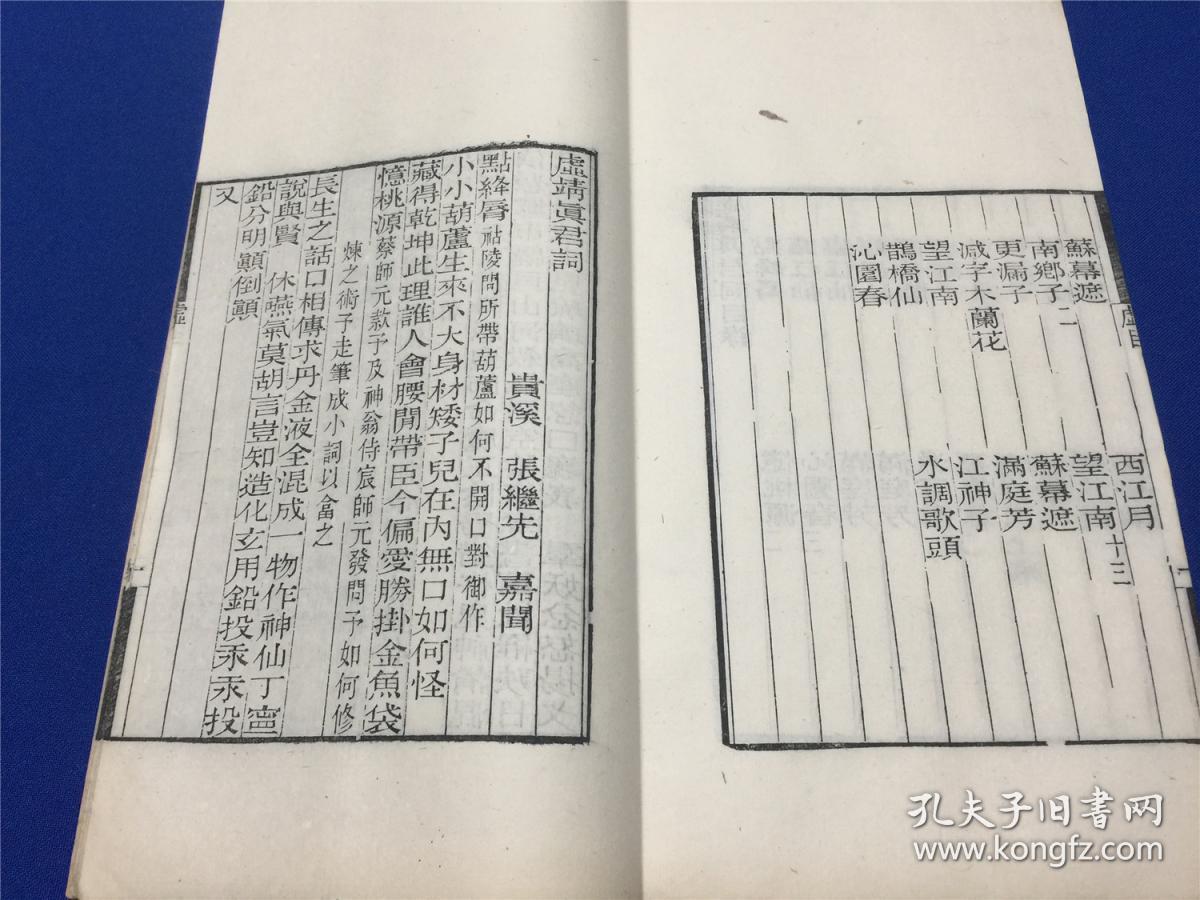 虛目
蘇幕遮 西江月
南鄉子二 望江南十三
更漏子 蘇幕遮
減字木蘭花 滿庭芳
望江南 江神子
鵲橋仙 水調歌頭
沁園春
虛靖眞君詞
貴溪 張繼先 嘉聞
點絳脣 祜陵問所帶葫蘆如何不開口對御作
小小葫蘆生來不大身材矮子兒在內無口如何怪
藏得乾坤此理誰人會腰閒帶臣今偏愛勝掛金魚袋
憶桃源 蔡師元款予及神翁侍宸師元發問予如何修
煉之術予走筆成小詞以畣之
長生之話口相傳求丹金液全混成一物作神仙丁甯
說與賢 休嚥氣莫胡言豈知造化玄用鉛投汞汞投
鉛分明顚倒顚
又
虛
孔夫子旧书网
www.kongfz.com